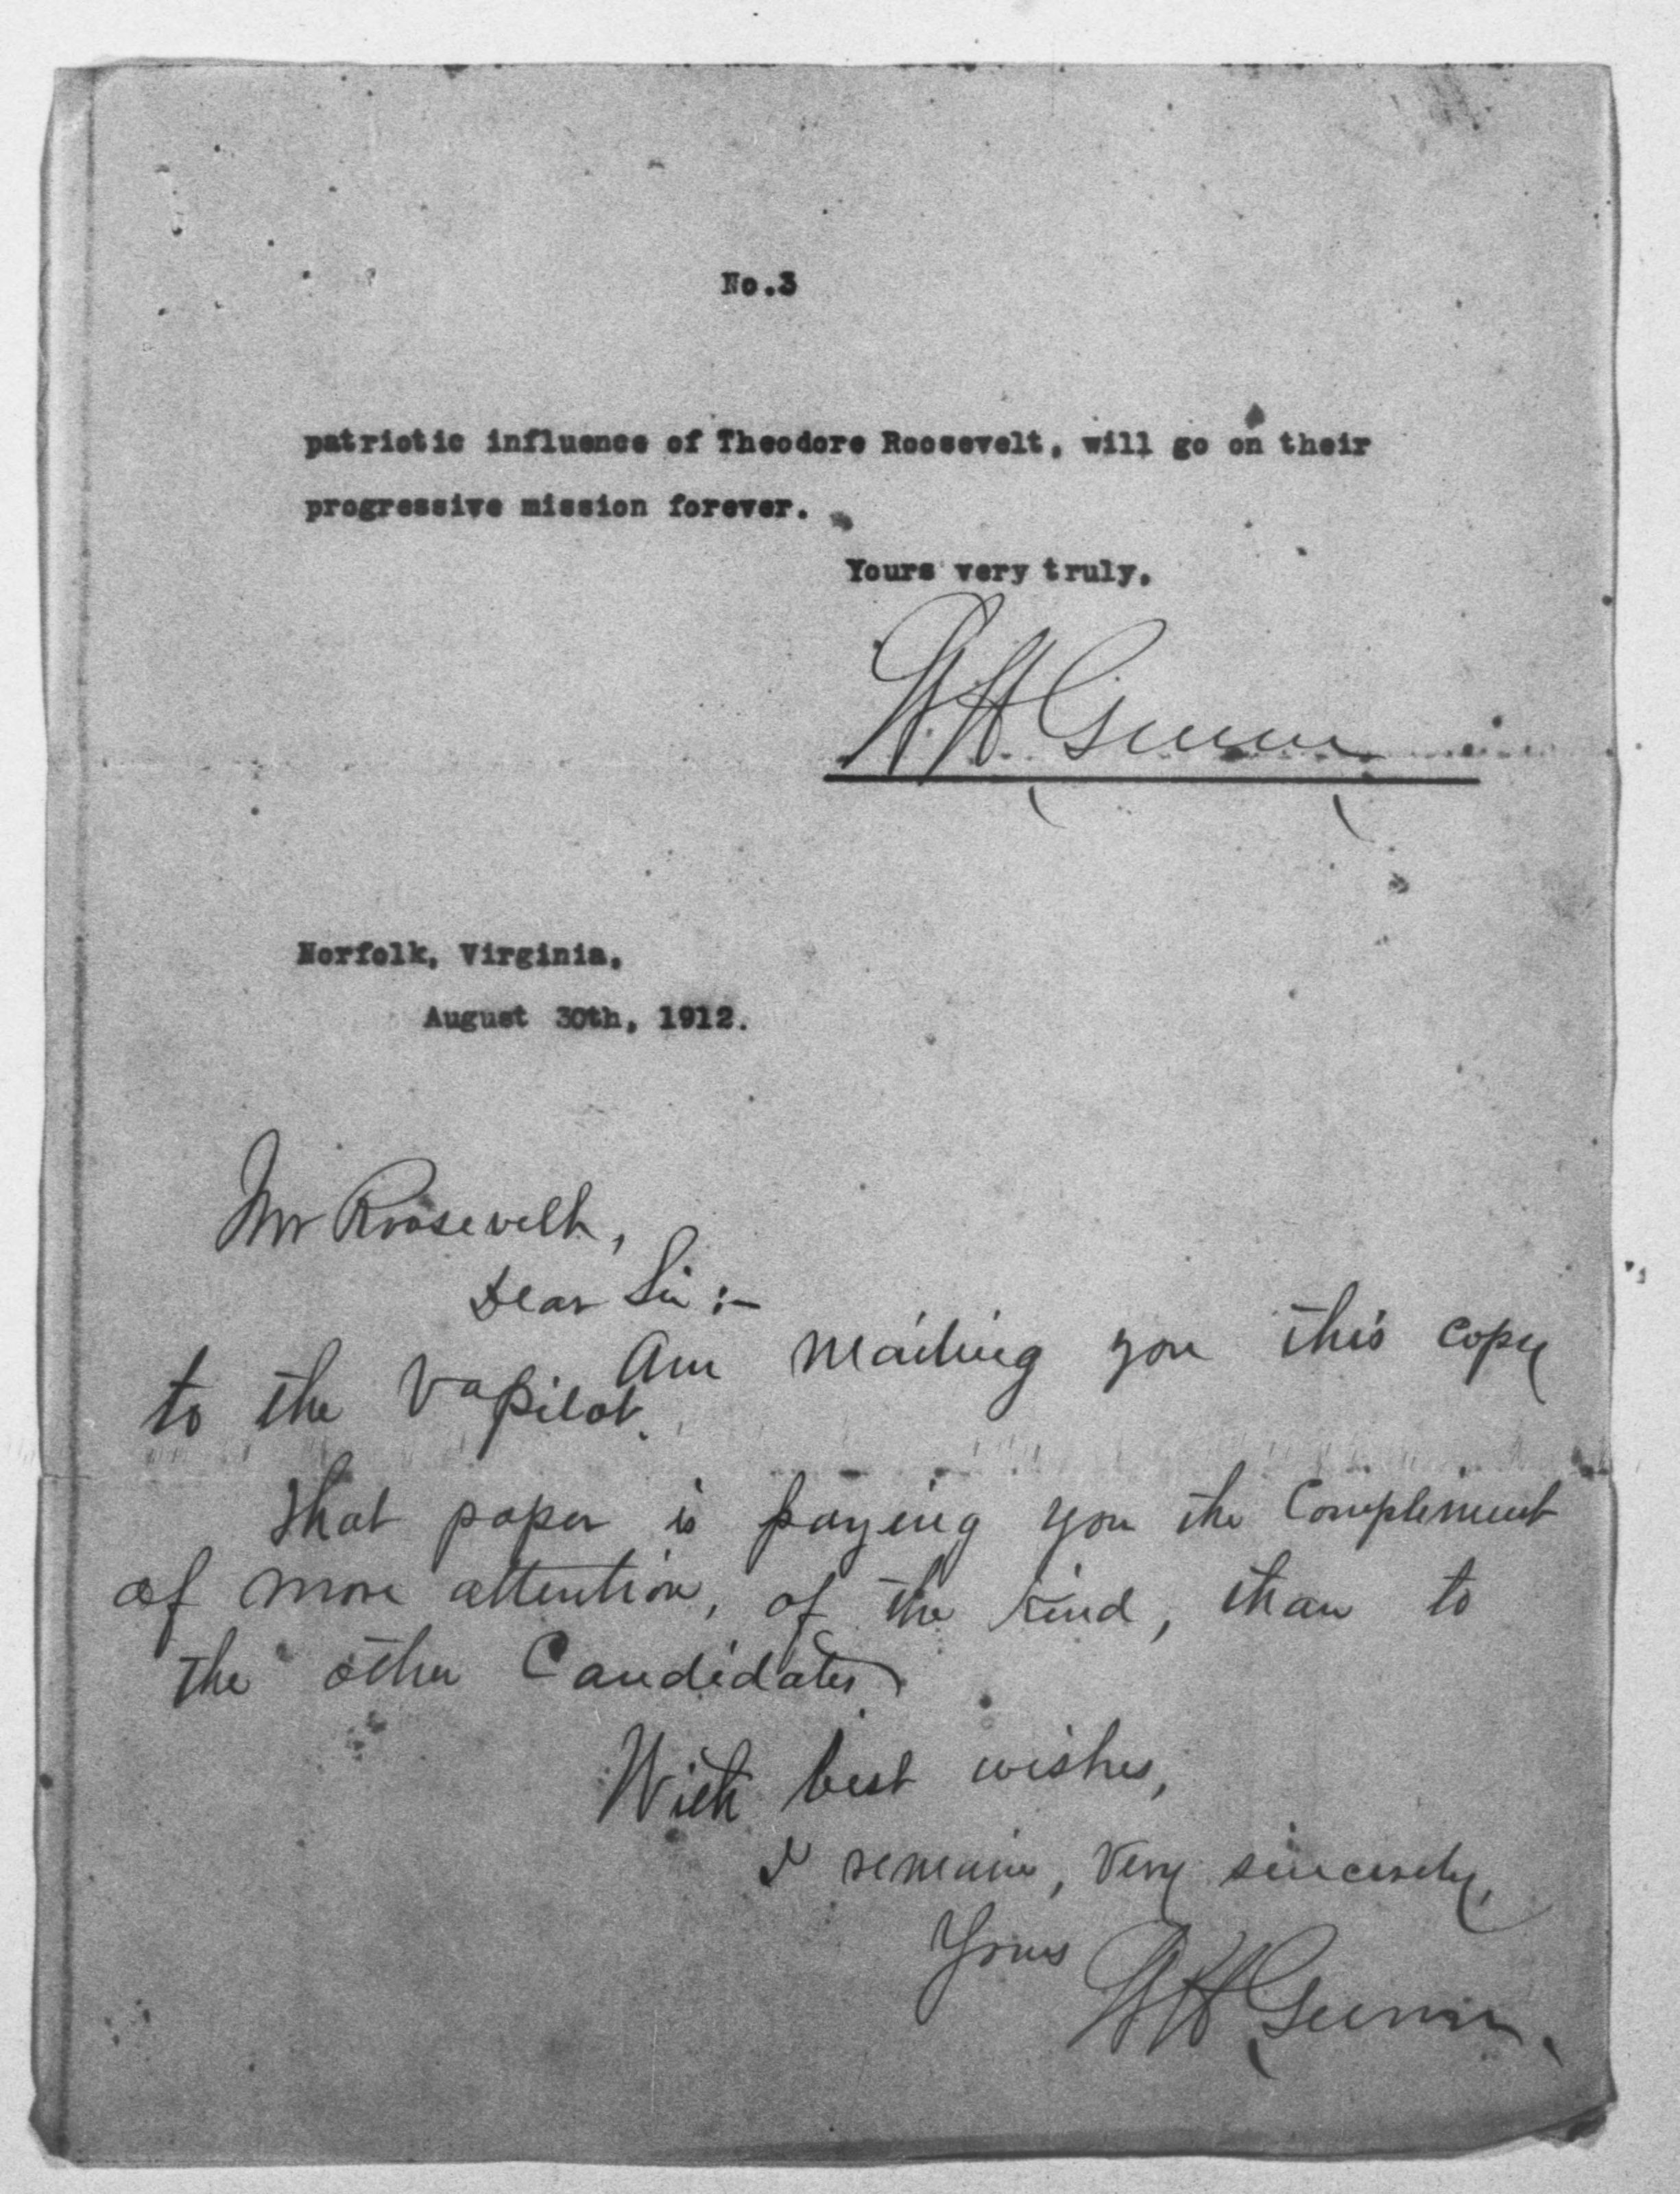 No.3
patriotic influence of Theodore Roosevelt, will go on their
progressive mission forever.
Yours very truly,
W. H. Gunn
Norfolk, Virginia,
August 30th, 1912.
Mr Roosevelt,
Dear Sir :-
Am mailing you this copy
to the Va Pilot.
That paper is paying you the Compliment
of more attention, of the kind, than to
the other Candidates.
With best wishes,
I remain, Very sincerely,
Yours W H Gunn.